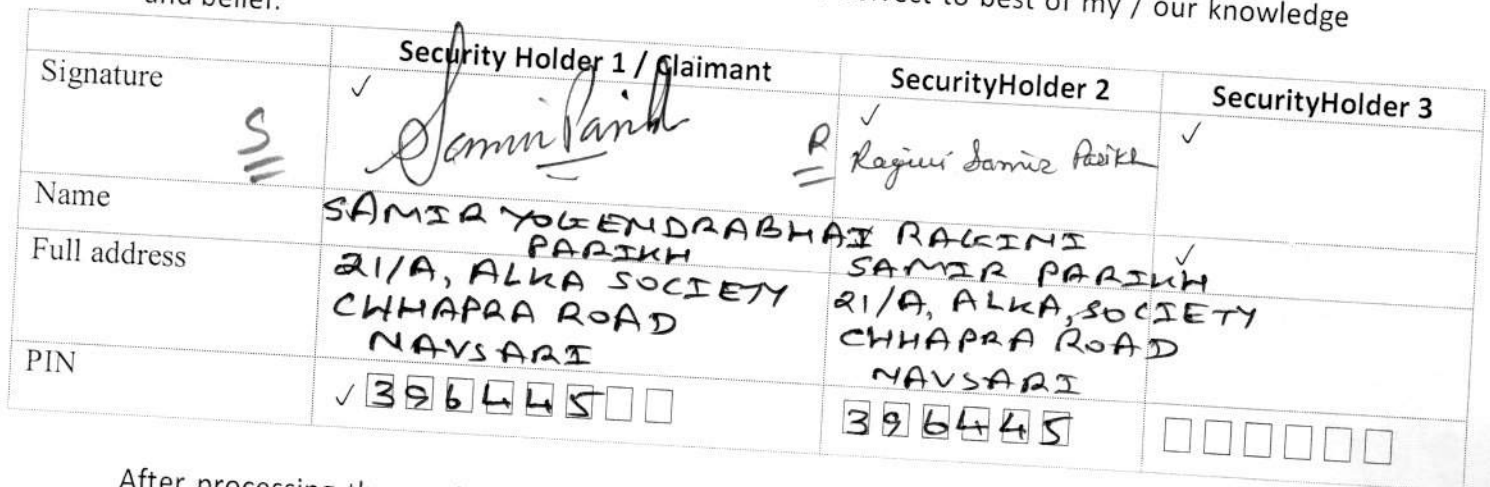 and belief.
rrect to best of my / our knowledge
Security Holder 1 / Claimant SecurityHolder 2 SecurityHolder 3
Signature ✓ ✓ ✓
S Samir Parikh R Ragini Samir Parikh
Name SAMIR YOGENDRABHAI RAGINI
PARIKH SAMIR PARIKH ✓
Full address 21/A, ALKA SOCIETY 21/A, ALKA, SOCIETY
CHHAPRA ROAD CHHAPRA ROAD
NAVSARI NAVSARI
PIN ✓ 396445 396445
After processing the